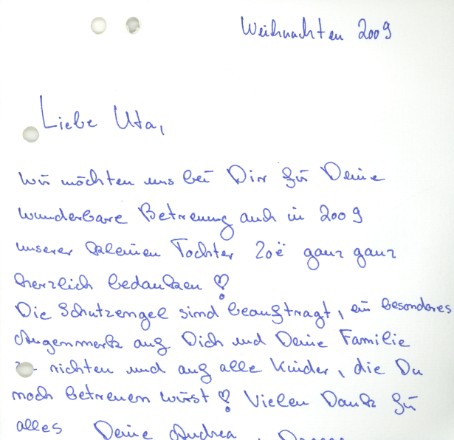 Weihnachten 2009
Liebe Uta,
wir möchten uns bei Dir für Deine
wunderbare Betreuung auch in 2009
unserer kleinen Tochter Zoë ganz ganz
herzlich bedanken!
Die Schutzengel sind beauftragt, ein besonderes
Augenmerk auf Dich und Deine Familie
richten und auf alle Kinder, die Du
noch betreuen wirst! Vielen Dank für
alles Deine Andrea,